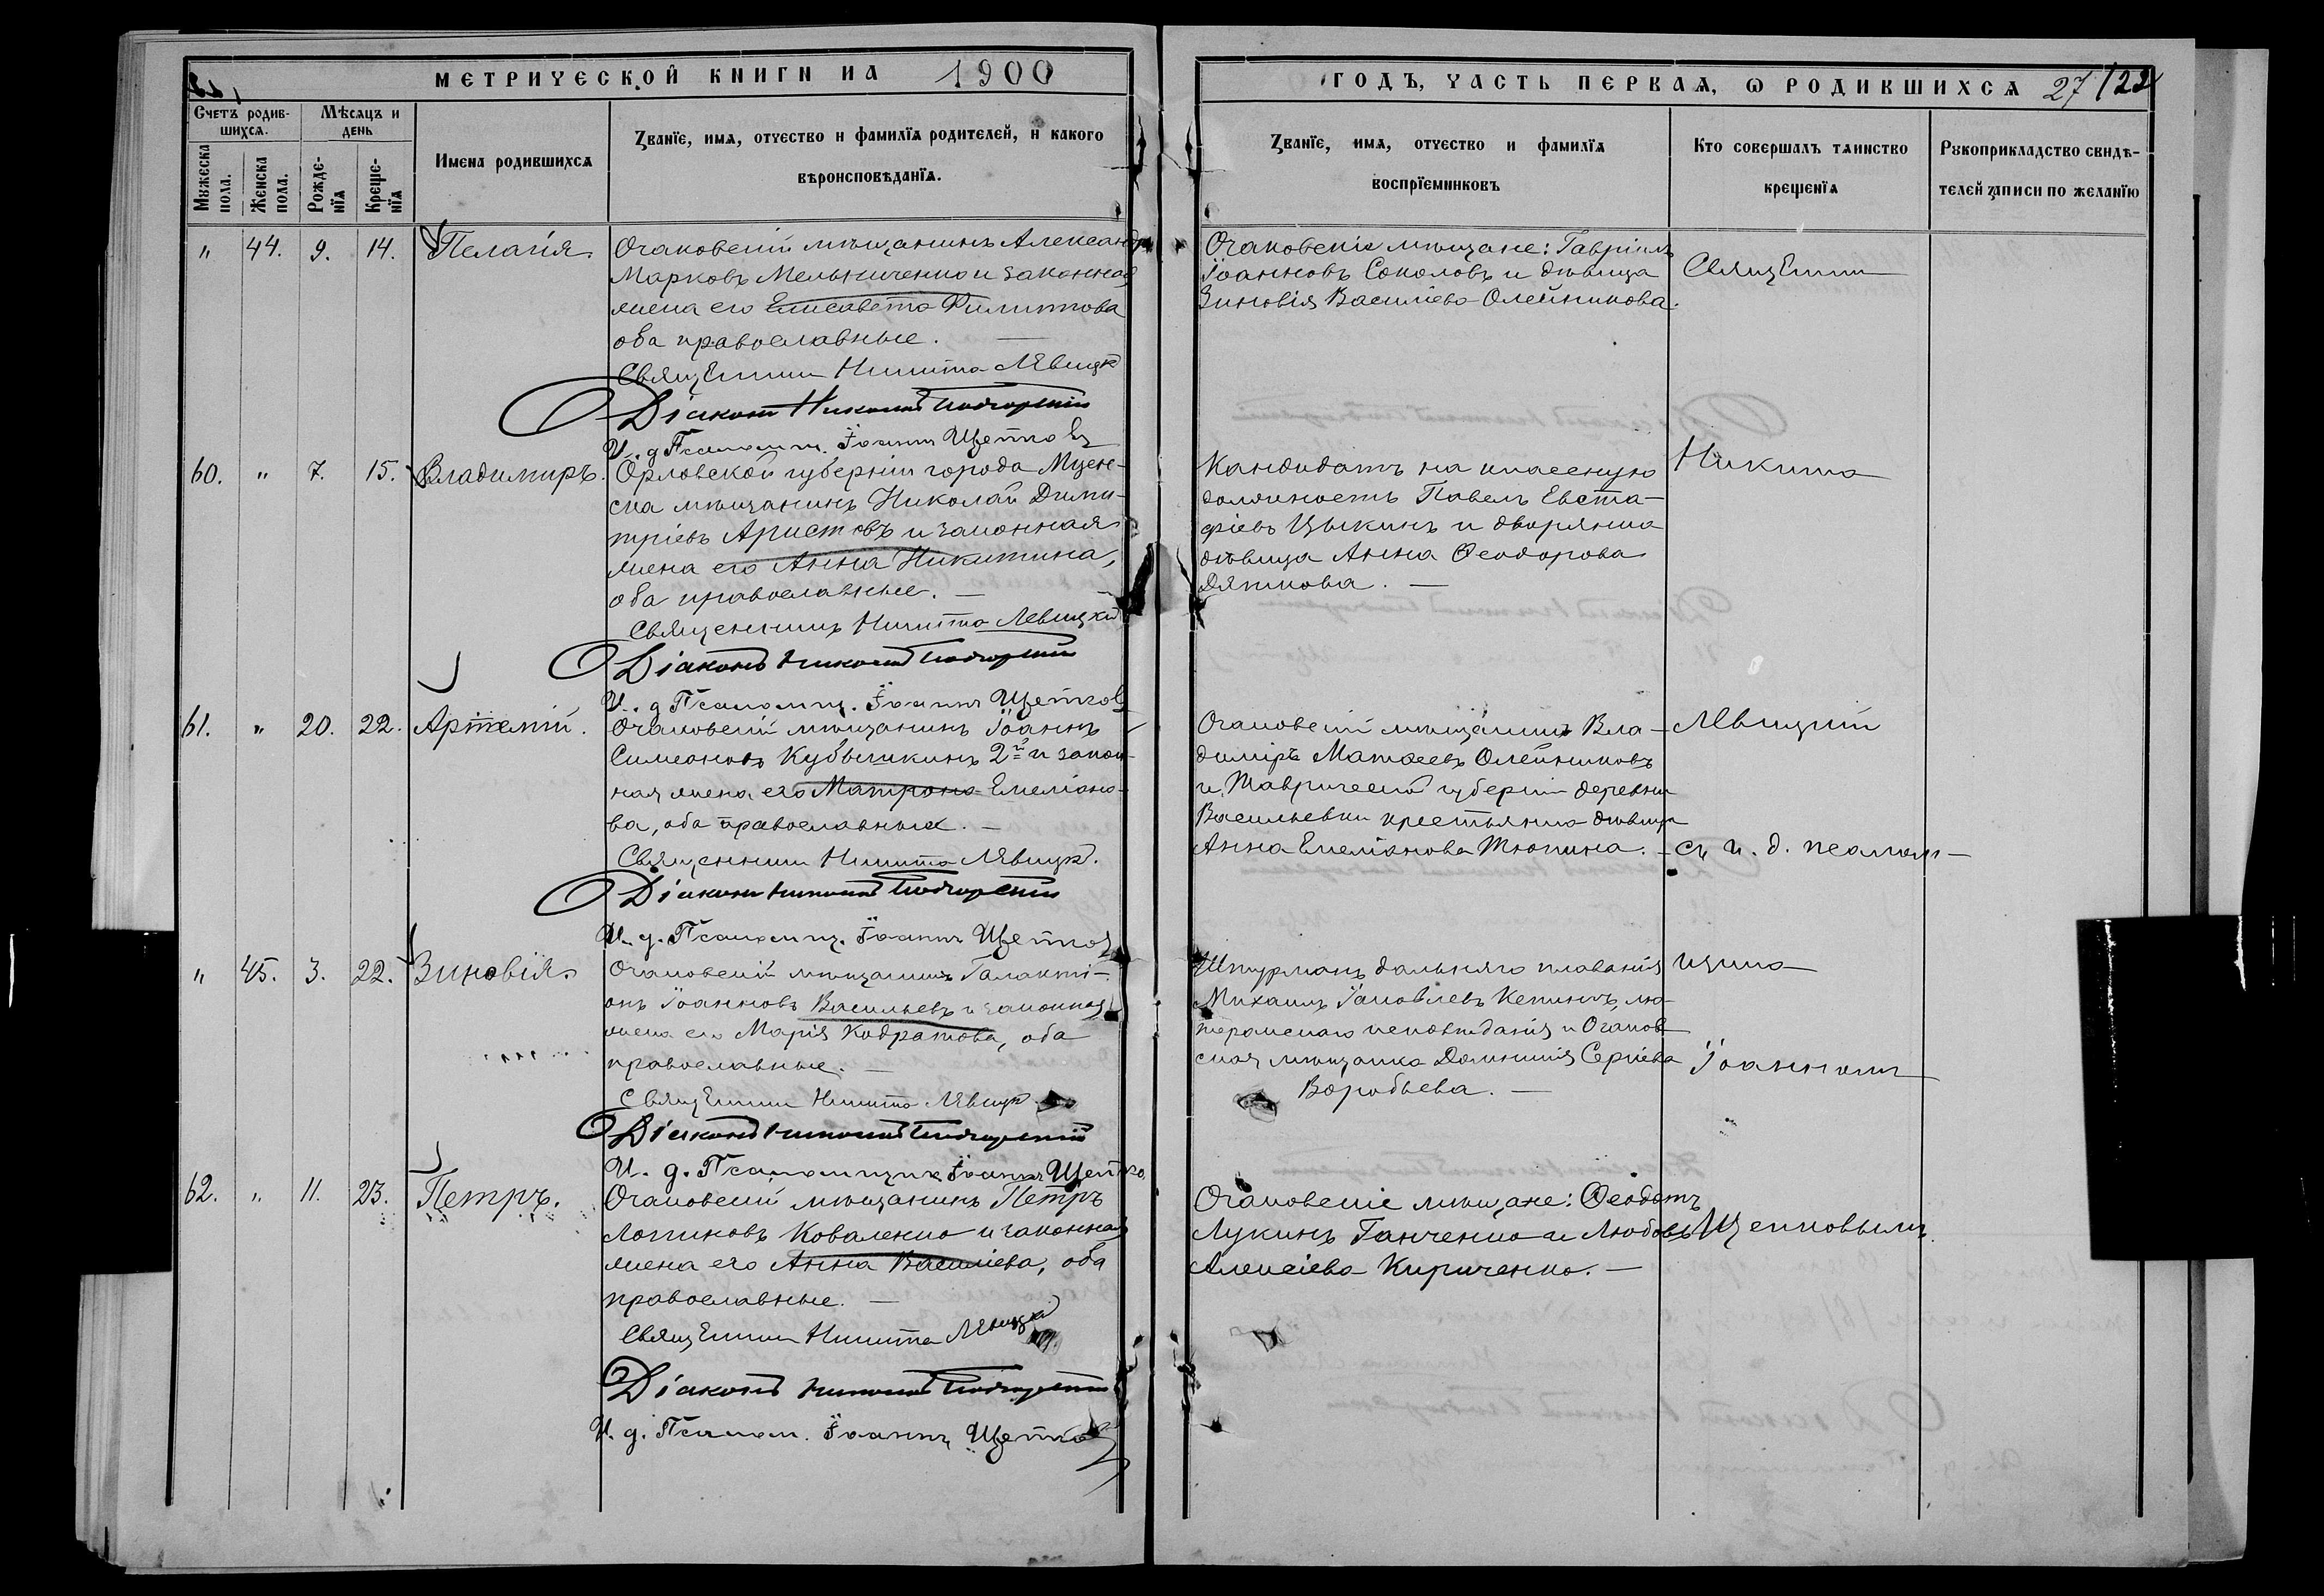 МЕТРИЧЕСКОЙ КНИГИ НА 1900
ГОДЪ, ЧАСТЬ ПЕРВАЯ, Ѡ РОДИВШИХСЯ 27
Счетъ родив-
шихся.
Мѣсяцъ и
день
Мужеска
пола.
Женска
пола.
Рожде-
нїя
Креще-
нїя
Имена родившихся
Званїе, имя, отчество и фамилїя родителей, и какого
вѣроисповѣданїя.
Званїе, имя, отчество и фамилїя
воспрїемниковъ
Кто совершалъ таинство
крещенїя
Рукоприкладство свидѣ-
телей записи по желанїю
" 44. 9. 14. Пелагія.
Очаковскій мѣщанинъ Александръ
Марковъ Мельниченко и законная
жена его Елисавета Филиппова
оба православные. —
Священникъ Никита Левицк
Діаконъ Николай Подгорскій
И. д. Псаломщ. Іоаннъ Щетковъ
Очаковскіе мѣщане: Гавріилъ
Іоанновъ Соколовъ и дѣвица
Зиновія Василіева Олейникова.
Священникъ
60. " 7. 15. Владимиръ.
Орловской губерніи города Мцен-
ска мѣщанинъ Николай Дими-
тріевъ Аристовъ и законная
жена его Анна Никитина,
оба православные. —
Священникъ Никита Левицкій
Діаконъ Николай Подгорскій
И. д. Псаломщ. Іоаннъ Щетковъ
Кандидатъ на классную
должность Павелъ Евста-
фіевъ Цыкинъ и дворянка
дѣвица Анна Ѳеодорова
Дяткова. —
Никита
61. " 20. 22. Артемій.
Очаковскій мѣщанинъ Іоаннъ
Симеоновъ Кубышкинъ 2й и закон-
ная жена его Матрона Емеліано-
ва, оба православные. —
Священникъ Никита Левицк.
Діаконъ Николай Подгорскій
И. д. Псаломщ. Іоаннъ Щетковъ
Очаковскій мѣщанинъ Вла-
диміръ Матѳеевъ Олейниковъ
и Таврической губерніи деревни
Васильевки крестьянка дѣвица
Анна Емеліанова Тюпина. —
Левицкій
съ и. д. псалом-
" 45. 3. 22. Зиновія
Очаковскій мѣщанинъ Галакті-
онъ Іоанновъ Васильевъ и законная
жена его Марія Кодратова, оба
православные. —
Священникъ Никита Левицк
Діаконъ Николай Подгорскій
И. д. Псаломщикъ Іоаннъ Щетко
Штурманъ дальняго плаванія
Михаилъ Іаковлевъ Кепингъ, лю-
теранскаго исповѣданія и Очаков-
ская мѣщанка Домникія Сергіева
Воробьева. —
щика
Іоанномъ
62. " 11. 23. Петръ.
Очаковскій мѣщанинъ Петръ
Логиновъ Коваленко и законная
жена его Анна Василіева, оба
православные. —
Священникъ Никита Левицкій
Діаконъ Николай Подгорскій
И. д. Псалом. Іоаннъ Щетковъ
Очаковскіе мѣщане: Ѳеодотъ
Лукинъ Ганченко и Любовь
Алексіева Кириченко. —
Щетковымъ.